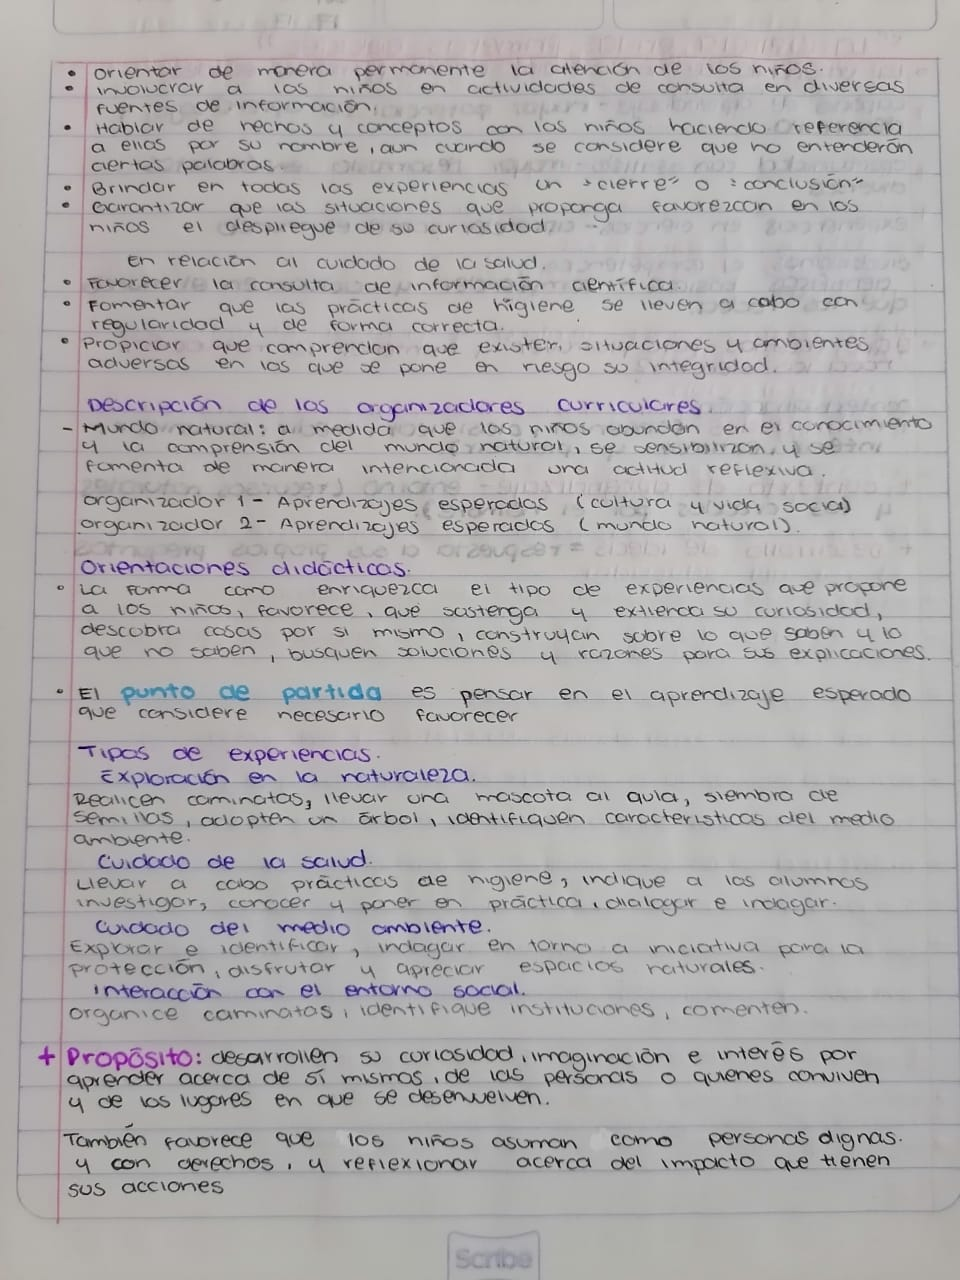 • Orientar de manera permanente la atención de los niños.
• Involucrar a los niños en actividades de consulta en diversas
fuentes de información.
• Hablar de hechos y conceptos con los niños haciendo referencia
a ellos por su nombre, aun cuando se considere que no entenderán
ciertas palabras.
• Brindar en todas las experiencias un "cierre" o "conclusión"
• Garantizar que las situaciones que proponga favorezcan en los
niños el despliegue de su curiosidad.
En relación al cuidado de la salud.
• Favorecer la consulta de información científica.
• Fomentar que las prácticas de higiene se lleven a cabo con
regularidad y de forma correcta.
• Propiciar que comprendan que existen situaciones y ambientes
adversos en los que se pone en riesgo su integridad.
Descripción de los organizadores curriculares.
- Mundo natural: a medida que los niños abundan en el conocimiento
y la comprensión del mundo natural, se sensibilizan, y se
fomenta de manera intencionada una actitud reflexiva.
Organizador 1- Aprendizajes esperados (cultura y vida social)
Organizador 2- Aprendizajes esperados (mundo natural).
Orientaciones didácticas.
• La forma como enriquezca el tipo de experiencias que propone
a los niños, favorece, que sostenga y extienda su curiosidad,
descubra cosas por si mismo, construyan sobre lo que saben y lo
que no saben, busquen soluciones y razones para sus explicaciones.
• El punto de partida es pensar en el aprendizaje esperado
que considere necesario favorecer
Tipos de experiencias.
Exploración en la naturaleza.
Realicen caminatas, llevar una mascota al aula, siembra de
semillas, adopten un árbol, identifiquen características del medio
ambiente.
Cuidado de la salud.
Llevar a cabo prácticas de higiene, indique a los alumnos
investigar, conocer y poner en práctica, dialogar e indagar.
Cuidado del medio ambiente.
Explorar e identificar, indagar en torno a iniciativa para la
protección, disfrutar y apreciar espacios naturales.
Interacción con el entorno social.
Organice caminatas, identifique instituciones, comenten.
+ Propósito: desarrollen su curiosidad, imaginación e interés por
aprender acerca de sí mismos, de las personas o quienes conviven
y de los lugares en que se desenvuelven.
También favorece que los niños asuman como personas dignas.
y con derechos, y reflexionar acerca del impacto que tienen
sus acciones
Scribe